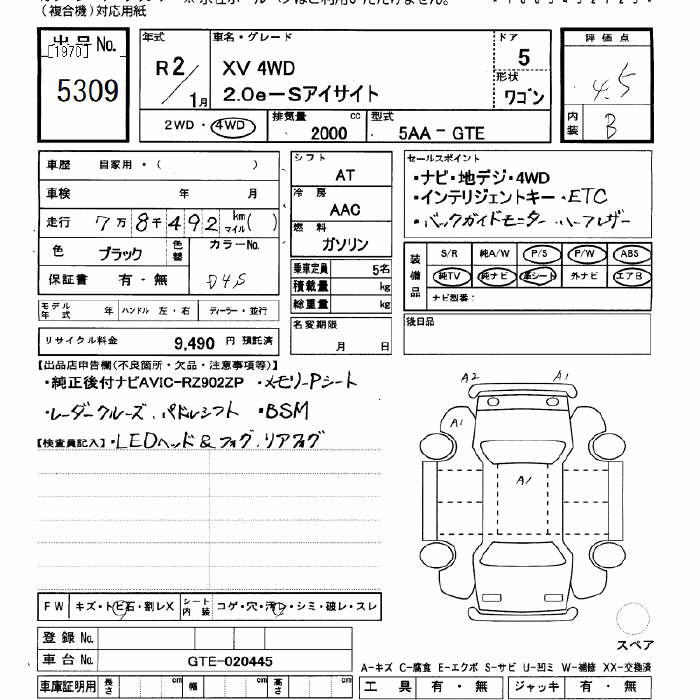 (複合機)対応用紙
出品No. 年式 車名・グレード ドア 評価点
[1970] R2/1月 XV 4WD 5 4.5
5309 2.0e-Sアイサイト 形状 ワゴン
2WD・4WD 排気量 2000 cc 型式 5AA-GTE 内装 B
車歴 自家用・( )
車検 年 月
走行 7万8千492 km マイル( )
色 ブラック 色替 カラーNo. D4S
保証書 有・無
モデル年式 年 ハンドル 左・右 ディーラー・並行
リサイクル料金 9,490 円 預託済
シフト AT
冷房 AAC
燃料 ガソリン
乗車定員 5名
積載量 kg
総重量 kg
名変期限 月 日
セールスポイント
・ナビ・地デジ・4WD
・インテリジェントキー・ETC
・バックガイドモニター・ハーフレザー
装備品 S/R 純A/W P/S P/W ABS
純TV 純ナビ 革シート 外ナビ エアB
ナビ型番:
後日品
【出品店申告欄(不良箇所・欠品・注意事項等)】
・純正後付ナビAVIC-RZ902ZP ・メモリーPシート
・レーダークルーズ.パドルシフト ・BSM
【検査員記入】・LEDヘッド&フォグ.リアフォグ
A2 A1
A1
A1
FW キズ・トビ石・割レX シート内装 コゲ・穴・汚レ・シミ・破レ・スレ
登録No.
車台No. GTE-020445
スペア
A-キズ C-腐食 E-エクボ S-サビ U-凹ミ W-補修 XX-交換済
車庫証明用 長さ cm 幅 cm 高さ cm 工具 有・無 ジャッキ 有・無